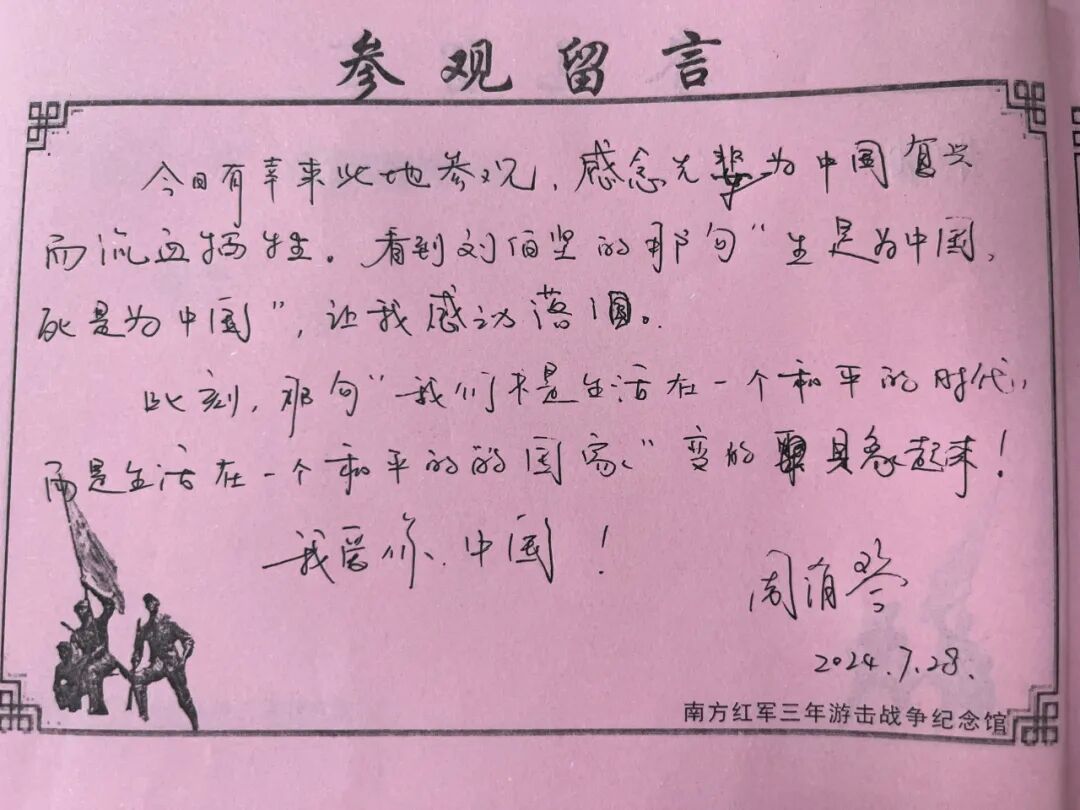 参观留言
今日有幸来此地参观，感念先辈为中国复兴
而流血牺牲。看到刘伯坚的那句“生是为中国，
死是为中国”，让我感动落泪。
此刻，那句“我们不是生活在一个和平的时代，
而是生活在一个和平的的国家”变的具象起来！
我爱你、中国！
周
2024.7.28.
南方红军三年游击战争纪念馆